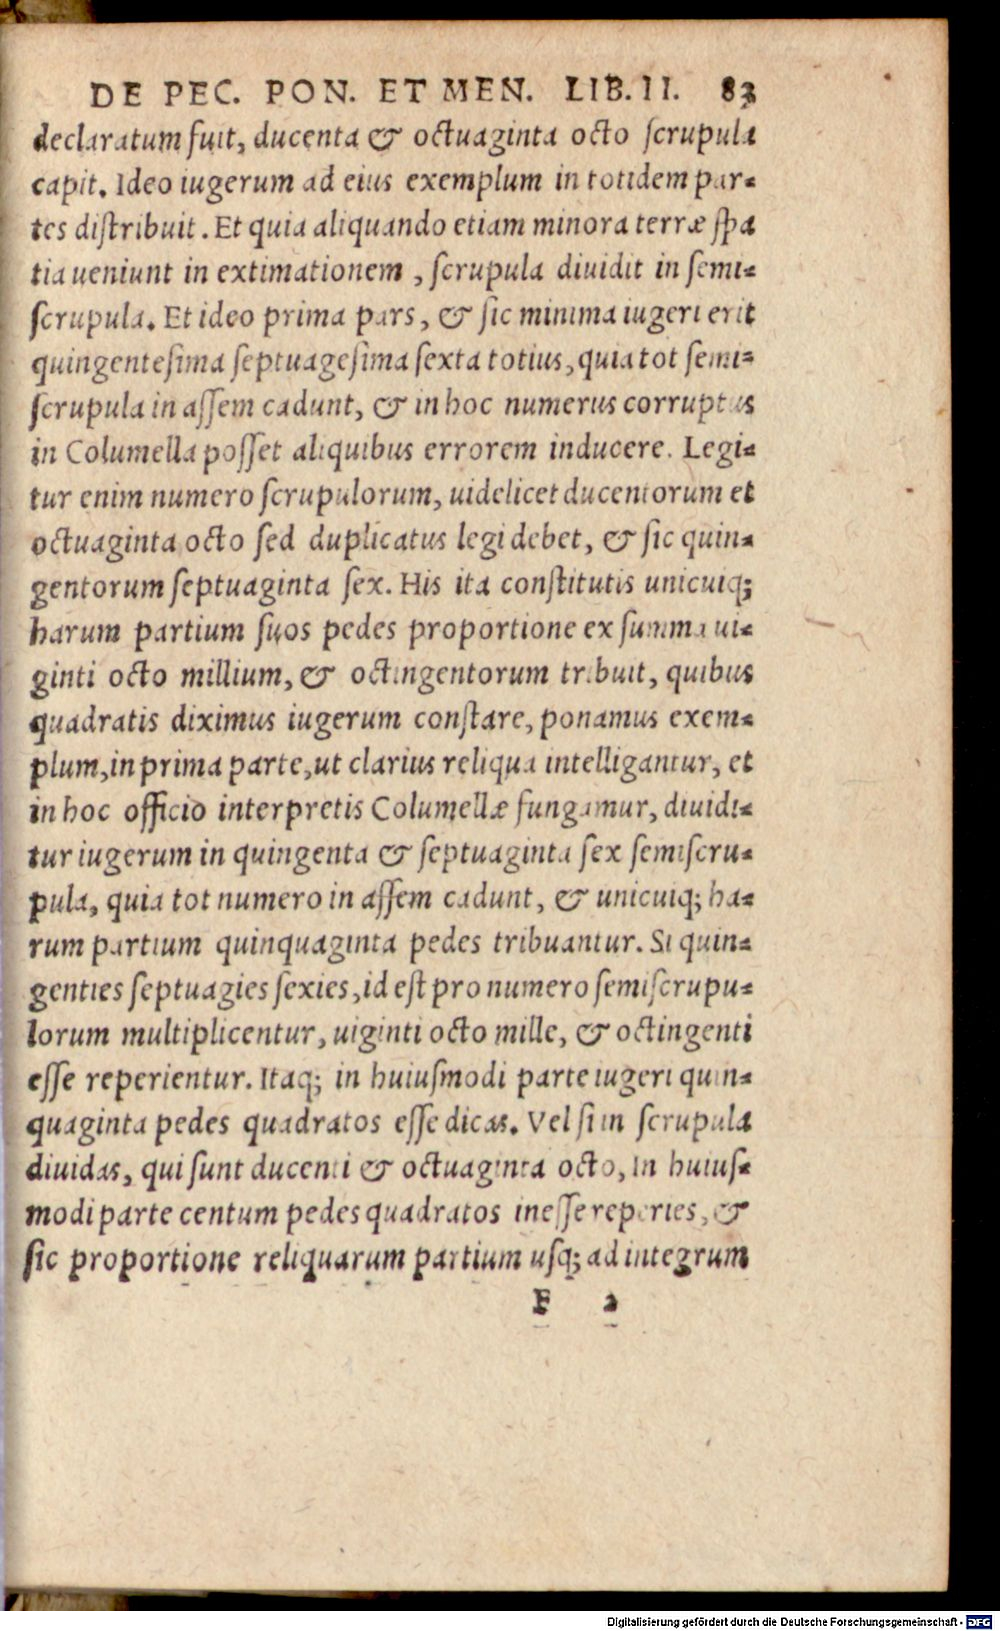 DE PEC. PON. ET MEN. LIB. II. 83
declaratum fuit, ducenta & octuaginta octo scrupula
capit. Ideo iugerum ad eius exemplum in totidem par-
tes distribuit. Et quia aliquando etiam minora terræ spa
tia ueniunt in extimationem, scrupula diuidit in semi-
scrupula. Et ideo prima pars, & sic minima iugeri erit
quingentesima septuagesima sexta totius, quia tot semi-
scrupula in assem cadunt, & in hoc numerus corruptus
in Columella posset aliquibus errorem inducere. Legi-
tur enim numero scrupulorum, uidelicet ducentorum et
octuaginta octo sed duplicatus legi debet, & sic quin-
gentorum septuaginta sex. His ita constitutis unicuiq;
harum partium suos pedes proportione ex summa ui-
ginti octo millium, & octingentorum tribuit, quibus
quadratis diximus iugerum constare, ponamus exem-
plum, in prima parte, ut clarius reliqua intelligantur, et
in hoc officio interpretis Columellæ fungamur, diuidi-
tur iugerum in quingenta & septuaginta sex semiscru-
pula, quia tot numero in assem cadunt, & unicuiq; ha-
rum partium quinquaginta pedes tribuantur. Si quin-
genties septuagies sexies, id est pro numero semiscrupu-
lorum multiplicentur, uiginti octo mille, & octingenti
esse reperientur. Itaq; in huiusmodi parte iugeri quin-
quaginta pedes quadratos esse dicas. Vel si in scrupula
diuidas, qui sunt ducenti & octuaginta octo, in huius-
modi parte centum pedes quadratos inesse reperies, &
sic proportione reliquarum partium usq; ad integrum
F 2
Digitalisierung gefördert durch die Deutsche Forschungsgemeinschaft - DFG